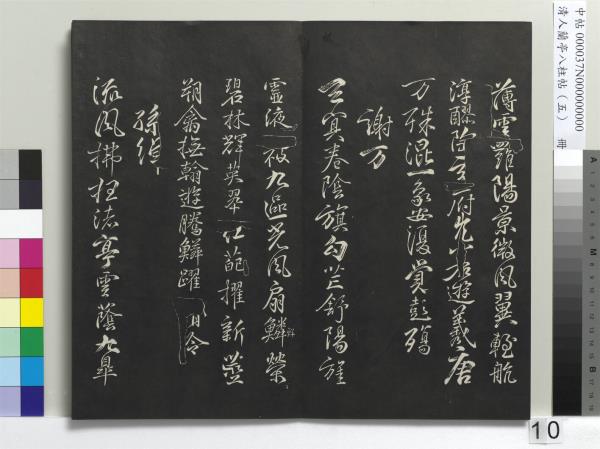 中帖 000037N0000000000
清人蘭亭八柱帖（五） 冊
薄雲羅陽景微風翼輕航
淳醪陶玄府兀若遊羲唐
万殊混一象安復覺彭殤
謝万
司冥卷陰旗句芒舒陽旌
靈液被九區光風扇鱗榮
碧林輝英翠紅葩擢新莖
翔禽撫翰遊騰鱗躍清泠
孫綽
流風拂枉渚亭雲蔭九皋
10